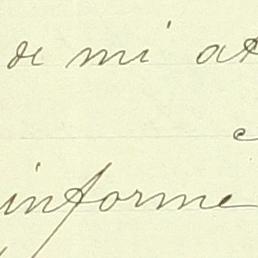 de mi at
informe